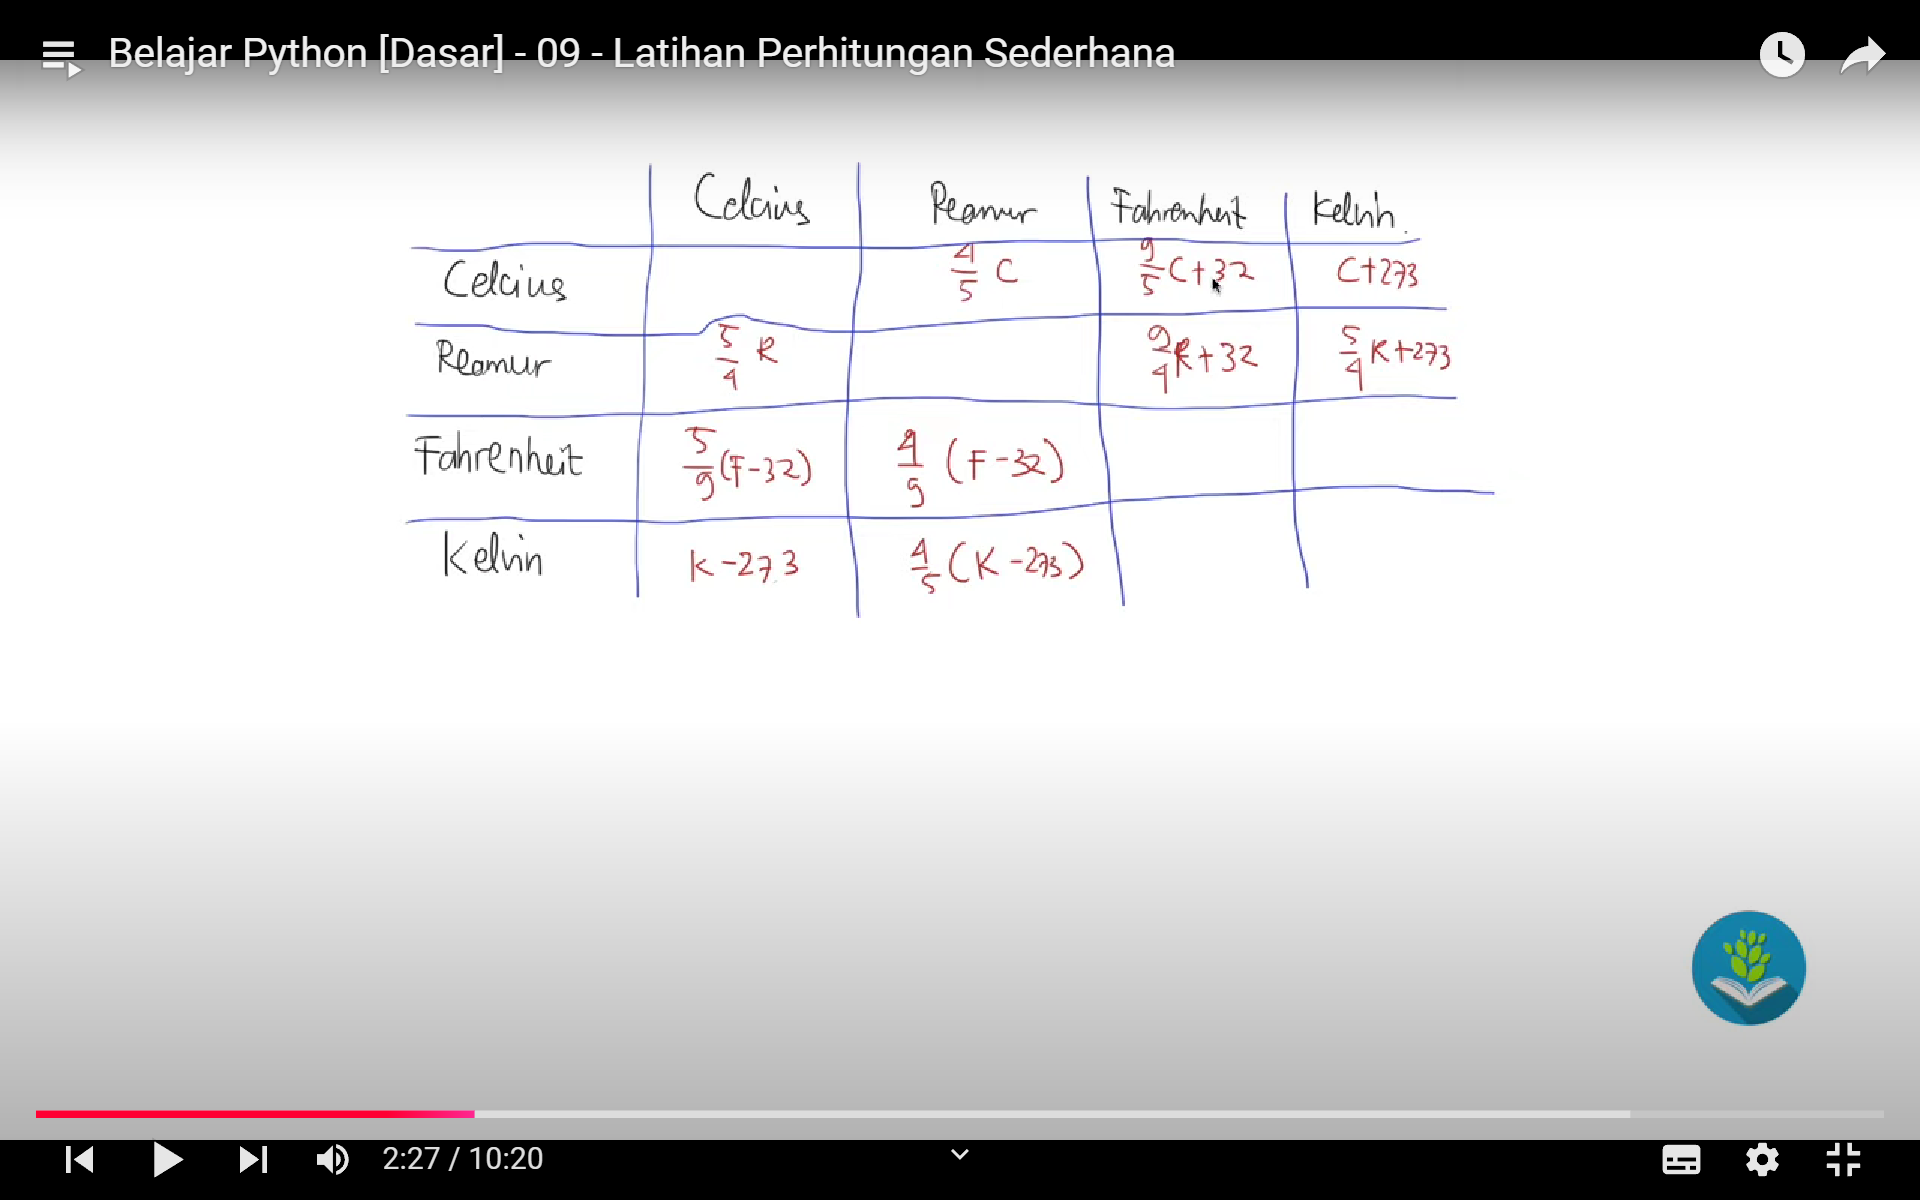 Belajar Python [Dasar] - 09 - Latihan Perhitungan Sederhana
Celcius Reamur Fahrenheit Kelvin
Celcius 4/5 C 9/5 C+32 C+273
Reamur 5/4 R 9/4 R+32 5/4 R+273
Fahrenheit 5/9 (F-32) 4/9 (F-32)
Kelvin K-273 4/5 (K-273)
2:27 / 10:20